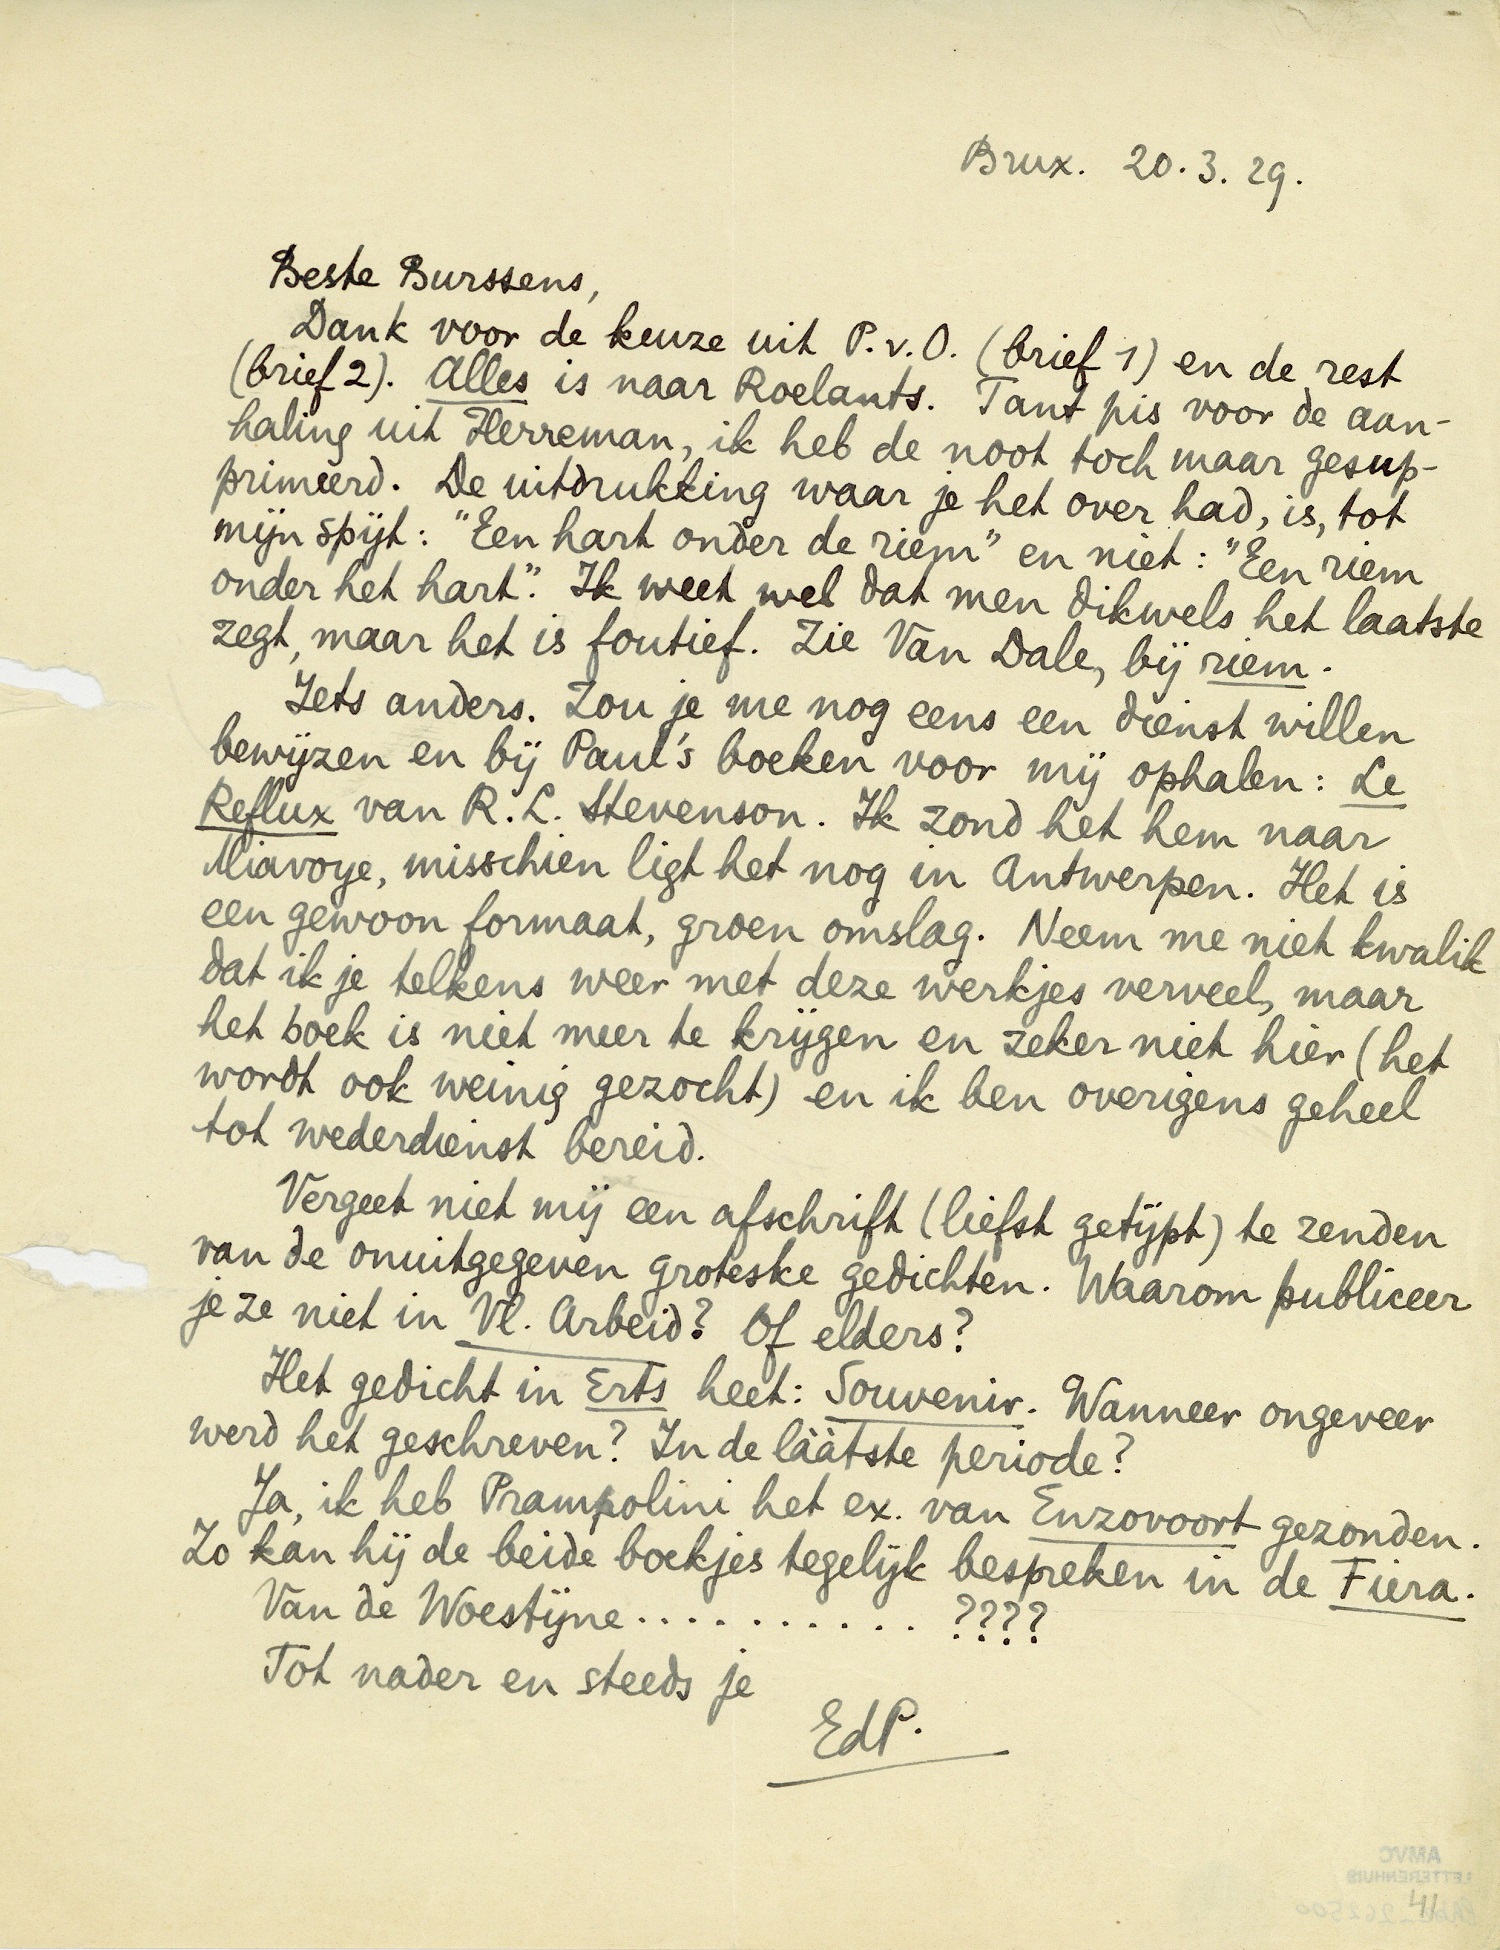 Brux. 20.3.29.
Beste Burssens,
Dank voor de keuze uit P.v.O. (brief 1) en de rest
(brief 2). Alles is naar Roelants. Tant pis voor de aan-
haling uit Herreman, ik heb de noot toch maar gesup-
primeerd. De uitdrukking waar je het over had, is, tot
mijn spijt: "Een hart onder de riem" en niet: "Een riem
onder het hart". Ik weet wel dat men dikwels het laatste
zegt, maar het is foutief. Zie Van Dale, bij riem.
Iets anders. Zou je me nog eens een dienst willen
bewijzen en bij Paul's boeken voor mij ophalen: Le
Reflux van R. L. Stevenson. Ik zond het hem naar
Miavoye, misschien ligt het nog in Antwerpen. Het is
een gewoon formaat, groen omslag. Neem me niet kwalik
dat ik je telkens weer met deze werkjes verveel, maar
het boek is niet meer te krijgen en zeker niet hier (het
wordt ook weinig gezocht) en ik ben overigens geheel
tot wederdienst bereid.
Vergeet niet mij een afschrift (liefst getijpt) te zenden
van de onuitgegeven groteske gedichten. Waarom publiceer
je ze niet in Vl. Arbeid? Of elders?
Het gedicht in Erts heet: Souvenir. Wanneer ongeveer
werd het geschreven? In de láátste periode?
Ja, ik heb Prampolini het ex. van Enzovoort gezonden.
Zo kan hij de beide boekjes tegelijk bespreken in de Fiera.
Van de Woestijne........... ????
Tot nader en steeds je
EdP.
AMVC
LETTERENHUIS
41